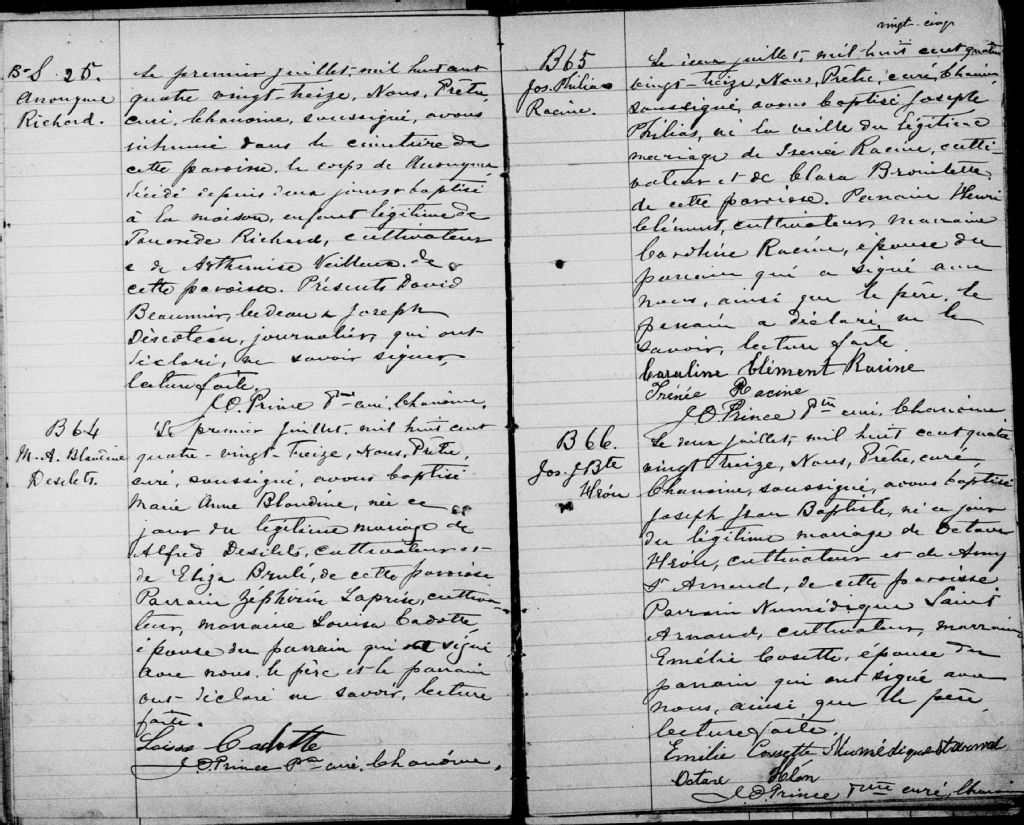 B-S 25.
Anonyme
Richard.
Le premier juillet, mil huit cent
quatre vingt-treize, Nous, Prêtre,
curé, Chanoine, soussigné, avons
inhumé dans le cimetière de
cette paroisse, le corps de Anonyme,
décédé depuis deux jours & baptisé
à la maison, enfant légitime de
Tancrède Richard, cultivateur
& de Arthémise Veilleux de
cette paroisse. Présents David
Beaumier, bedeau & Joseph
Descoteau, journalier, qui ont
déclaré, ne savoir signer,
lecture faite.
J.O. Prince Ptre curé, Chanoine.
B 64
M.-A. Blandine
Desilets.
Le premier juillet, mil huit cent
quatre-vingt-Treize, Nous, Prêtre,
curé, soussigné, avons baptisé
Marie Anne Blandine, née ce
jour du légitime mariage de
Alfred Desilets, cultivateur et
de Eliza Brulé, de cette paroisse
Parrain Zéphirin Laprise, cultiva-
teur, marraine Louisa Cadotte,
épouse du parrain qui a signé
avec nous, le père et le parrain
ont déclaré ne savoir, lecture
faite.
Cadotte
J.O. Prince Ptre curé, Chanoine,
vingt-cinq
B 65
Jos. Philias
Racine.
Le deux juillet, mil huit cent quatre
vingt-treize, Nous, Prêtre, curé, Chanoine
soussigné, avons baptisé Joseph
Philias, né la veille du légitime
mariage de Irénée Racine, culti-
vateur et de Clara Brouillette
de cette paroisse. Parrain Henri
Clément, cultivateur, marraine
Caroline Racine, épouse du
parrain qui a signé avec
nous, ainsi que le père, le
parrain a déclaré, ne le
savoir, lecture faite
Caraline Clément Racine
Irénée Racine
J.O. Prince Ptre curé, Chanoine
B 66.
Jos. J Bte
Héon
Le deux juillet, mil huit cent quatre
vingt treize, Nous, Prêtre, curé,
Chanoine, soussigné, avons baptisé
Joseph Jean Baptiste, né ce jour
du légitime mariage de Octave
Héon, cultivateur et de Amy
St Arnaud, de cette paroisse
Parrain Numédique Saint
Arnaud, cultivateur, marraine
Emélie Cosette, épouse du
parrain qui ont signé avec
nous, ainsi que le père,
lecture faite.
Emélie Cossette Numédique St arnaud
Octave Héon
J.O. Prince Ptre curé, Chanoine